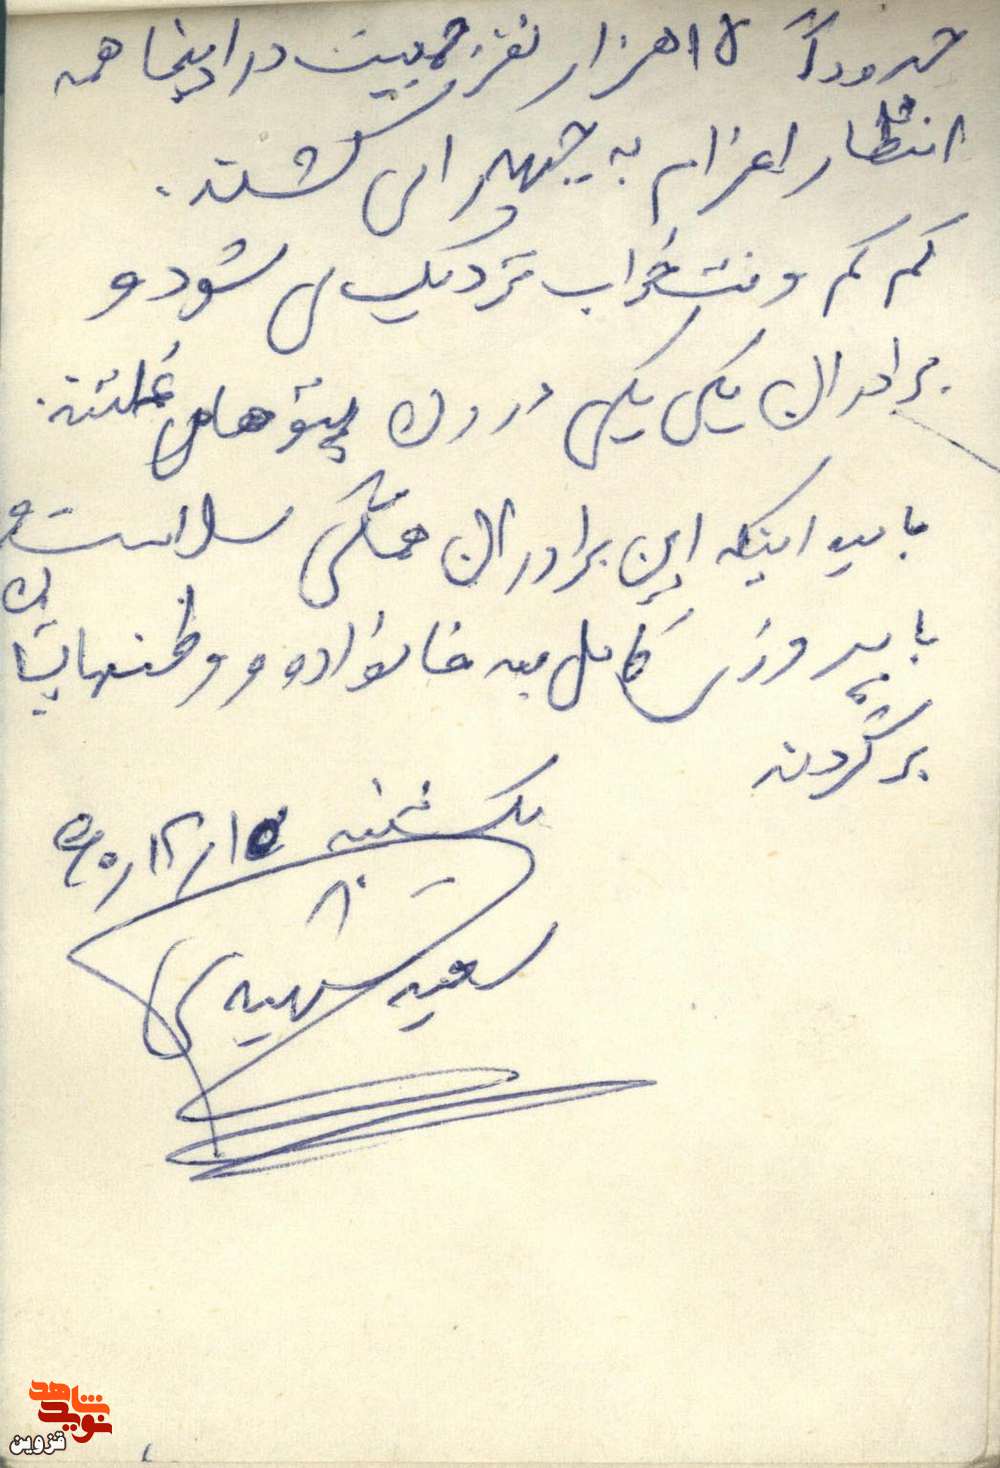 حدوداً ۱۵ هزار نفر جمعیت در اینجا همه
انتظار اعزام به جبهه را می کشند.
کم کم وقت خواب نزدیک می شود و
برادران یکی یکی درون پتوهای غلتند.
بامید اینکه این برادران همگی سلامت و
با پیروزی کامل به خانواده و وطنهایشان
برگردند
یکشنبه ۶۰/۱۲/۱۵
سعید شهیدی
نوید شاهد
قزوین